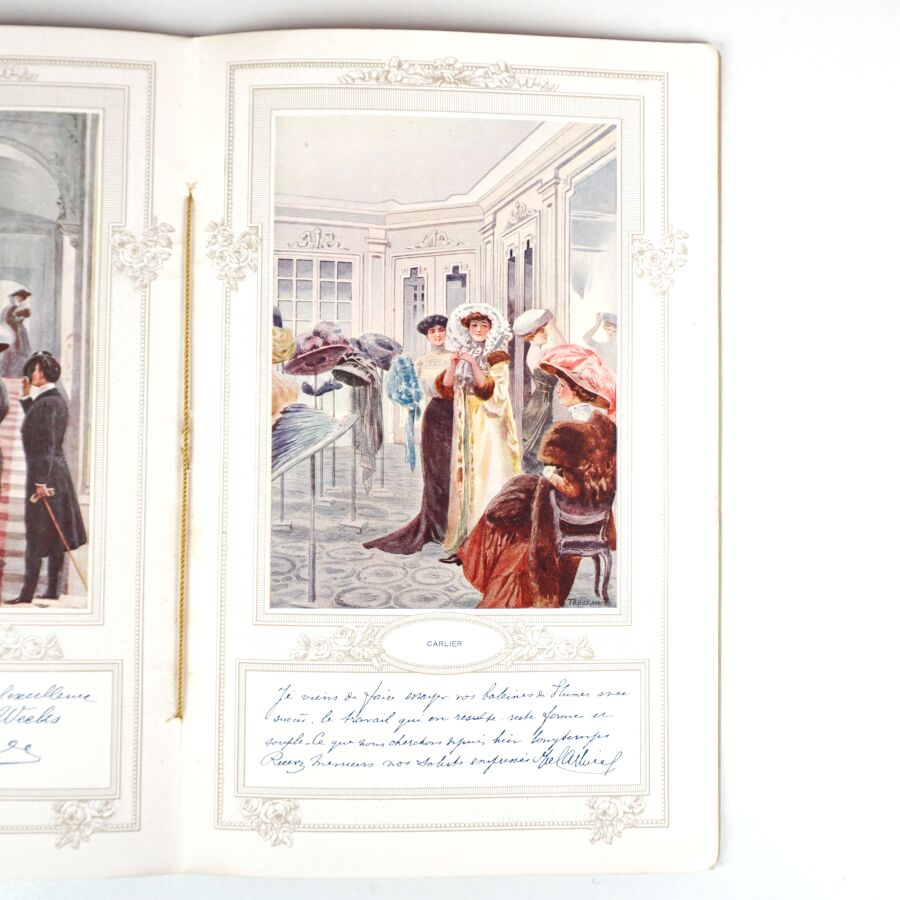 l'excellence
Weeks
Toussaint
CARLIER
Je viens de faire essayer vos baleines de Plumes avec
succès. le travail qui en résulte reste ferme et
souple. Ce que nous cherchons depuis bien longtemps
Recevez Messieurs nos Saluts empressés